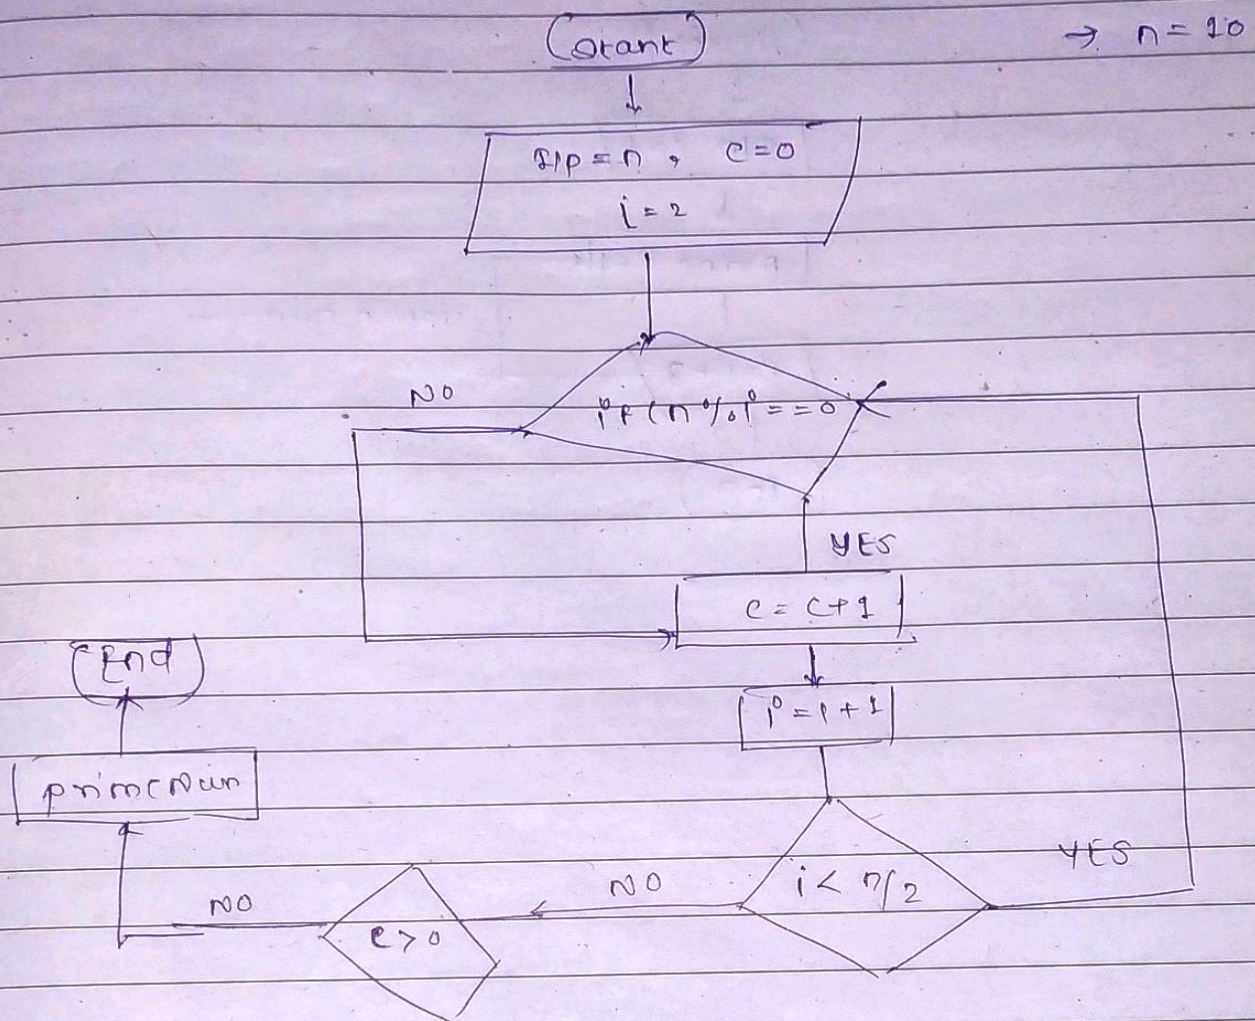 Start
→ n = 10
I/p = n, c=0
i = 2
NO
if (n % i == 0
YES
c = c+1
End
i = i + 1
prime Num
YES
i < n/2
NO
NO
c > 0